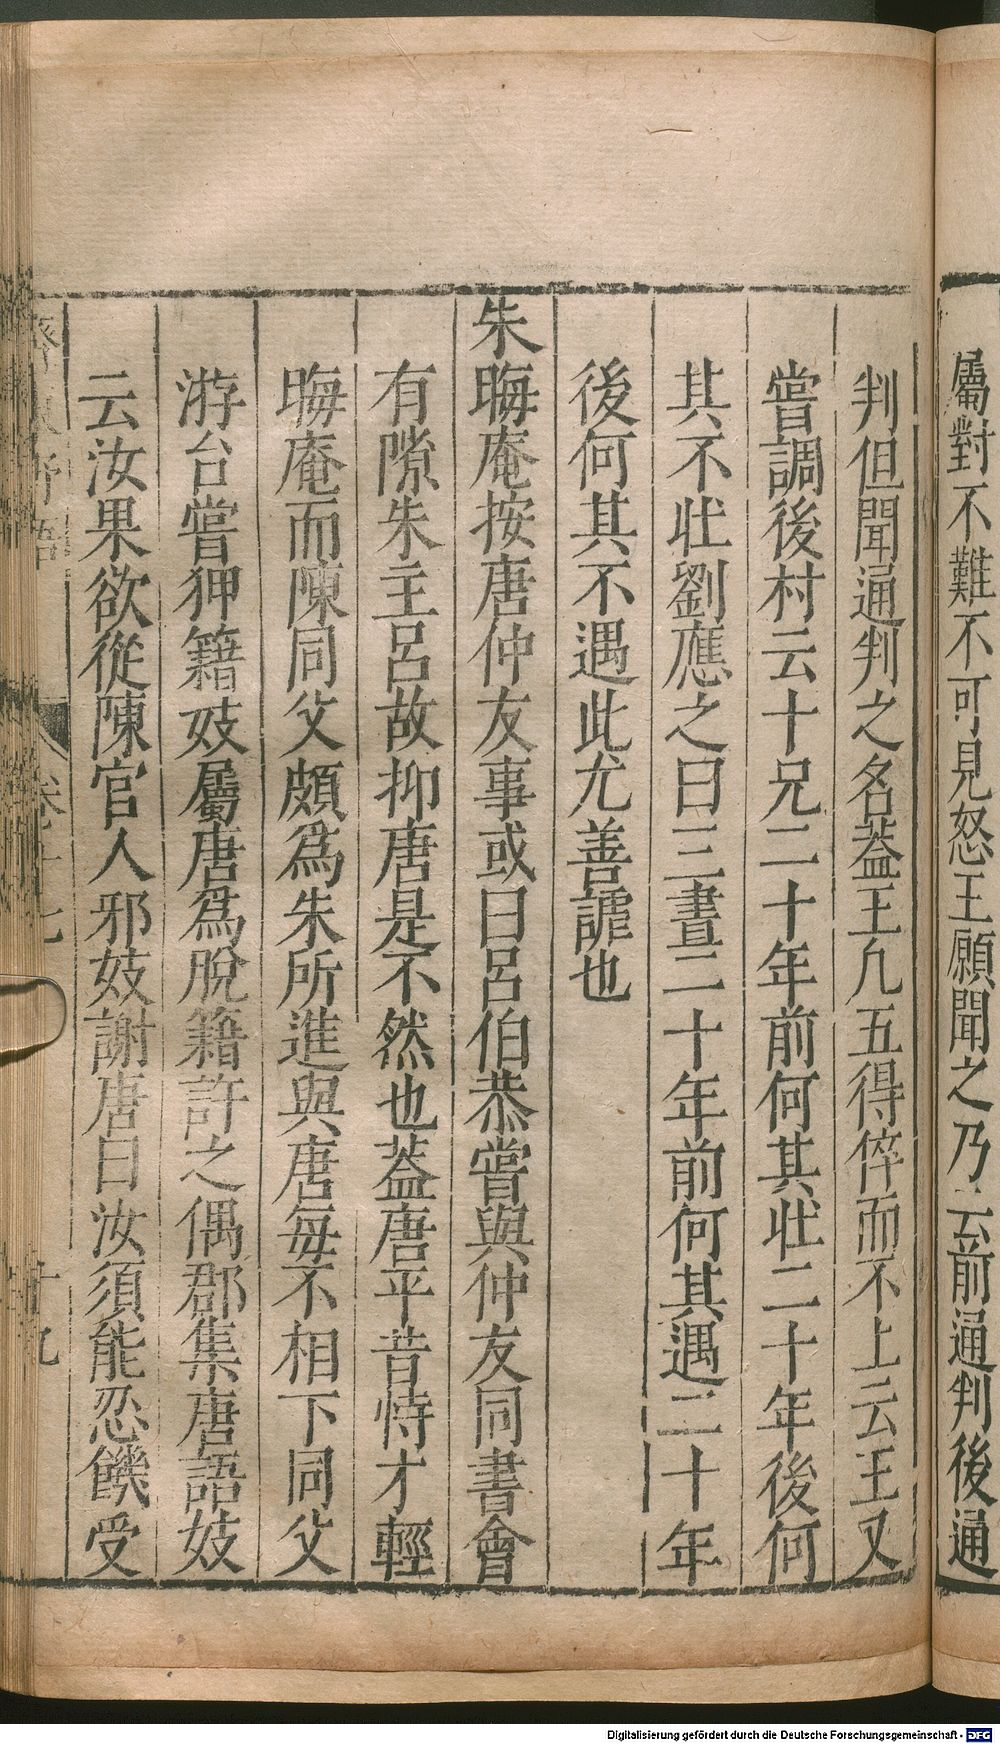 屬對不難不可見怒王願聞之乃云前通判後通
判但聞通判之名葢王凢五得倅而不上云王又
嘗調後村云十兄二十年前何其壯二十年後何
其不壯劉應之曰二十年前何其遇二十年
後何其不遇此尤善謔也
朱晦庵按唐仲友事或曰呂伯恭嘗與仲友同書會
有隙朱主呂故抑唐是不然也葢唐平昔恃才輕
晦庵而陳同父頗爲朱所進與唐每不相下同父
游台嘗狎籍妓屬唐爲脫籍許之偶郡集唐語妓
云汝果欲從陳官人邪妓謝唐曰汝須能忍饑受
齊東野語 卷十七 十九
Digitalisierung gefördert durch die Deutsche Forschungsgemeinschaft - DFG